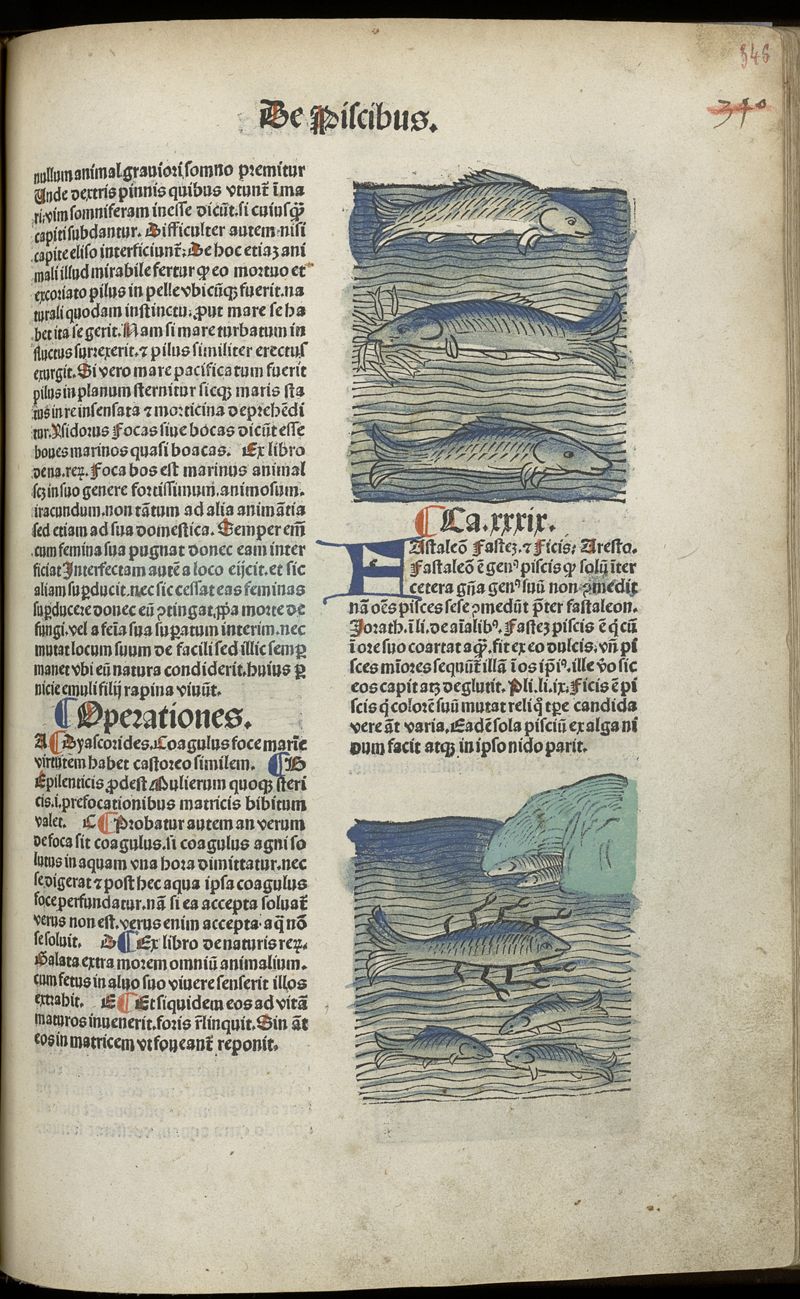 346
De Piscibus.
340
nullum animal grauiori somno premitur
Unde dextris pinnis quibus vtunt̃ ĩ ma
ri, vim somniferam inesse dicũt. si cuiusq̃
capiti subdantur. Difficulter autem nisi
capite eliso interficiunt̃: De hoc etiaʒ ani
mali illud mirabile fertur ꝙ eo mortuo et
excoriato pilus in pelle vbicũqʒ fuerit. na
turali quodam instinctu, ꝓut mare se ha
bet ita se gerit. Nam si mare turbatum in
fluctus surrexerit. ⁊ pilus similiter erectus
exurgit. Si vero mare pacificatum fuerit
pilus in planum sternitur sicqʒ maris sta
tus in re insensata ⁊ morticina deprehẽdi
tur. Ysidorus Focas siue bocas dicũt esse
boues marinos quasi boacas. Ex libro
de na. reꝝ. Foca bos est marinus animal
scʒ in suo genere fortissimum. animosum.
iracundum. non tãtum ad alia animãtia
sed etiam ad sua domestica. Semper em̃
cum femina sua pugnat donec eam inter
ficiat Interfectam autẽ a loco eijcit. et sic
aliam suꝑducit. nec sic cessat eas feminas
suꝑducere donec eũ ꝯtingat, ꝓpa morte de
fungi. vel a feĩa sua suꝑatum interim. nec
mutat locum suum de facili sed illic semꝑ
manet vbi eũ natura condiderit. huius ꝑ
nicie emuli filij rapina viuũt.
¶ Operationes.
A ¶ Dyascorides. Coagulus foce marĩe
virtutem habet castoreo similem. ¶ B
Epilenticis ꝓdest Mulierum quoqʒ steri
cis. i. prefocationibus matricis bibitum
valet. C ¶ Probatur autem an verum
de foca sit coagulus. si coagulus agni so
lutus in aquam vna hora dimittatur. nec
se digerat ⁊ post hec aqua ipsa coagulus
foce perfundatur. nã si ea accepta soluat̃
verus non est. verus enim accepta aq̃ nõ
se soluit. D ¶ Ex libro de naturis reꝝ.
Galata extra morem omniũ animalium.
cum fetus in aluo suo viuere senserit illos
extrahit. E ¶ Et siquidem eos ad vitã
maturos inuenerit. foris r̃linquit. Sin ãt
eos in matricem vt foueant̃ reponit.
¶ Ca. xxxix.
FAstaleõ Fasteʒ. ⁊ Ficis: Aresto.
Fastaleõ ẽ genꝰ piscis ꝙ solũ ĩter
cetera gñ̃a genꝰ suũ non ꝯmedit
nã oẽs pisces sese ꝯmedũt p̃ter fastaleon.
Jorath. ĩ li. de aĩalibꝰ. Fasteʒ piscis ẽ q̃ cũ
ĩ ore suo coartat aq̃. fit ex eo dulcis, vñ pi
sces mĩores sequũt̃ illã ĩ os ip̃iꝰ. ille v̓o sic
eos capit atqʒ deglutit. Pli. li. ix. Ficis ẽ pi
scis q̃ colorẽ suũ mutat reliq̃ tp̃e candida
vere ãt varia. Eadẽ sola pisciũ ex alga ni
dum facit atqʒ in ipso nido parit.